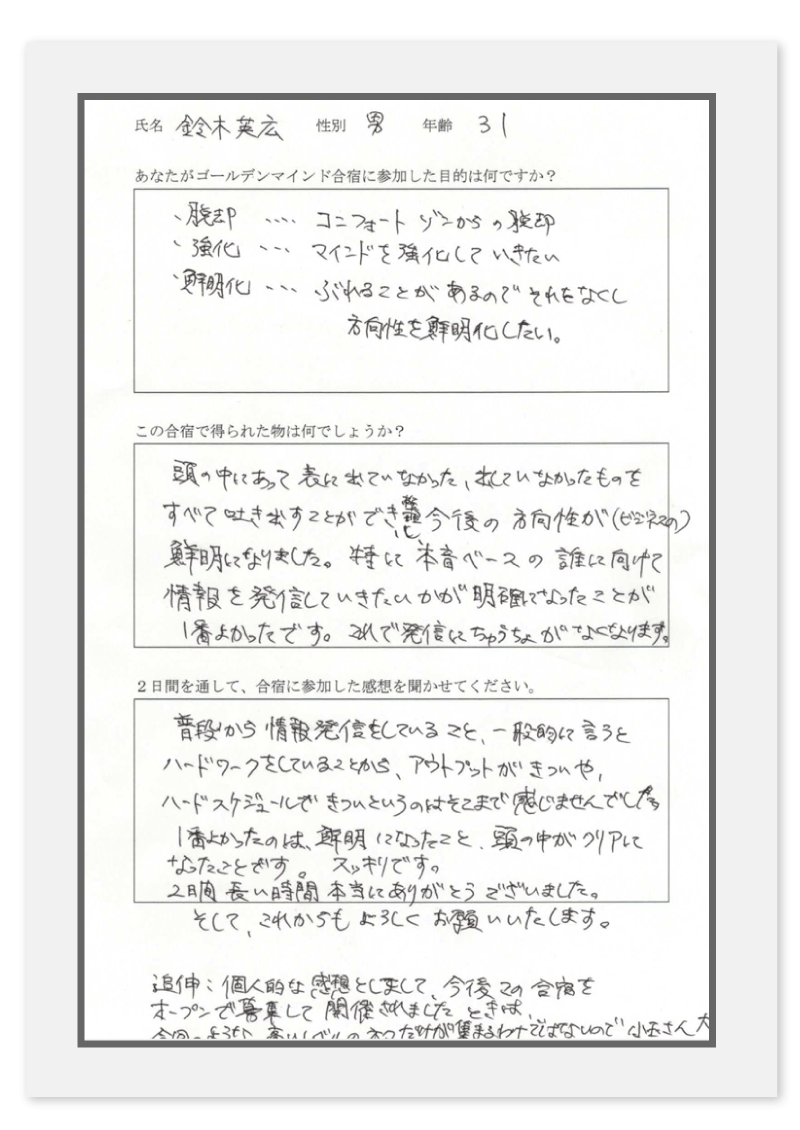 氏名 鈴木英広 性別 男 年齢 31
あなたがゴールデンマインド合宿に参加した目的は何ですか？
、脱却 ‥‥ コンフォートゾンからの脱却
、強化 ‥‥ マインドを強化していきたい
、鮮明化 ‥‥ ぶれることがあるのでそれをなくし
方向性を鮮明化したい。
この合宿で得られた物は何でしょうか？
頭の中にあって表に出ていなかった、出していなかったものを
すべて吐き出すことができ整理し今後の方向性が(ビジネスの)
鮮明になりました。特に本音ベースの誰に向けて
情報を発信していきたいかが明確になったことが
1番よかったです。これで発信にちゅうちょがなくなります。
２日間を通して、合宿に参加した感想を聞かせてください。
普段から情報発信をしていること、一般的に言うと
ハードワークをしていることから、アウトプットがきついや、
ハードスケジュールできついというのはそこまで感じませんでした
1番よかったのは、鮮明になったこと、頭の中がクリアに
なったことです。スッキリです。
2日間長い時間本当にありがとうございました。
そして、これからもよろしくお願いいたします。
追伸：個人的な感想としまして、今後この合宿を
オープンで募集して開催されましたときは、
今回のような高いレベルの だけが集まるわけではないので小玉さん大